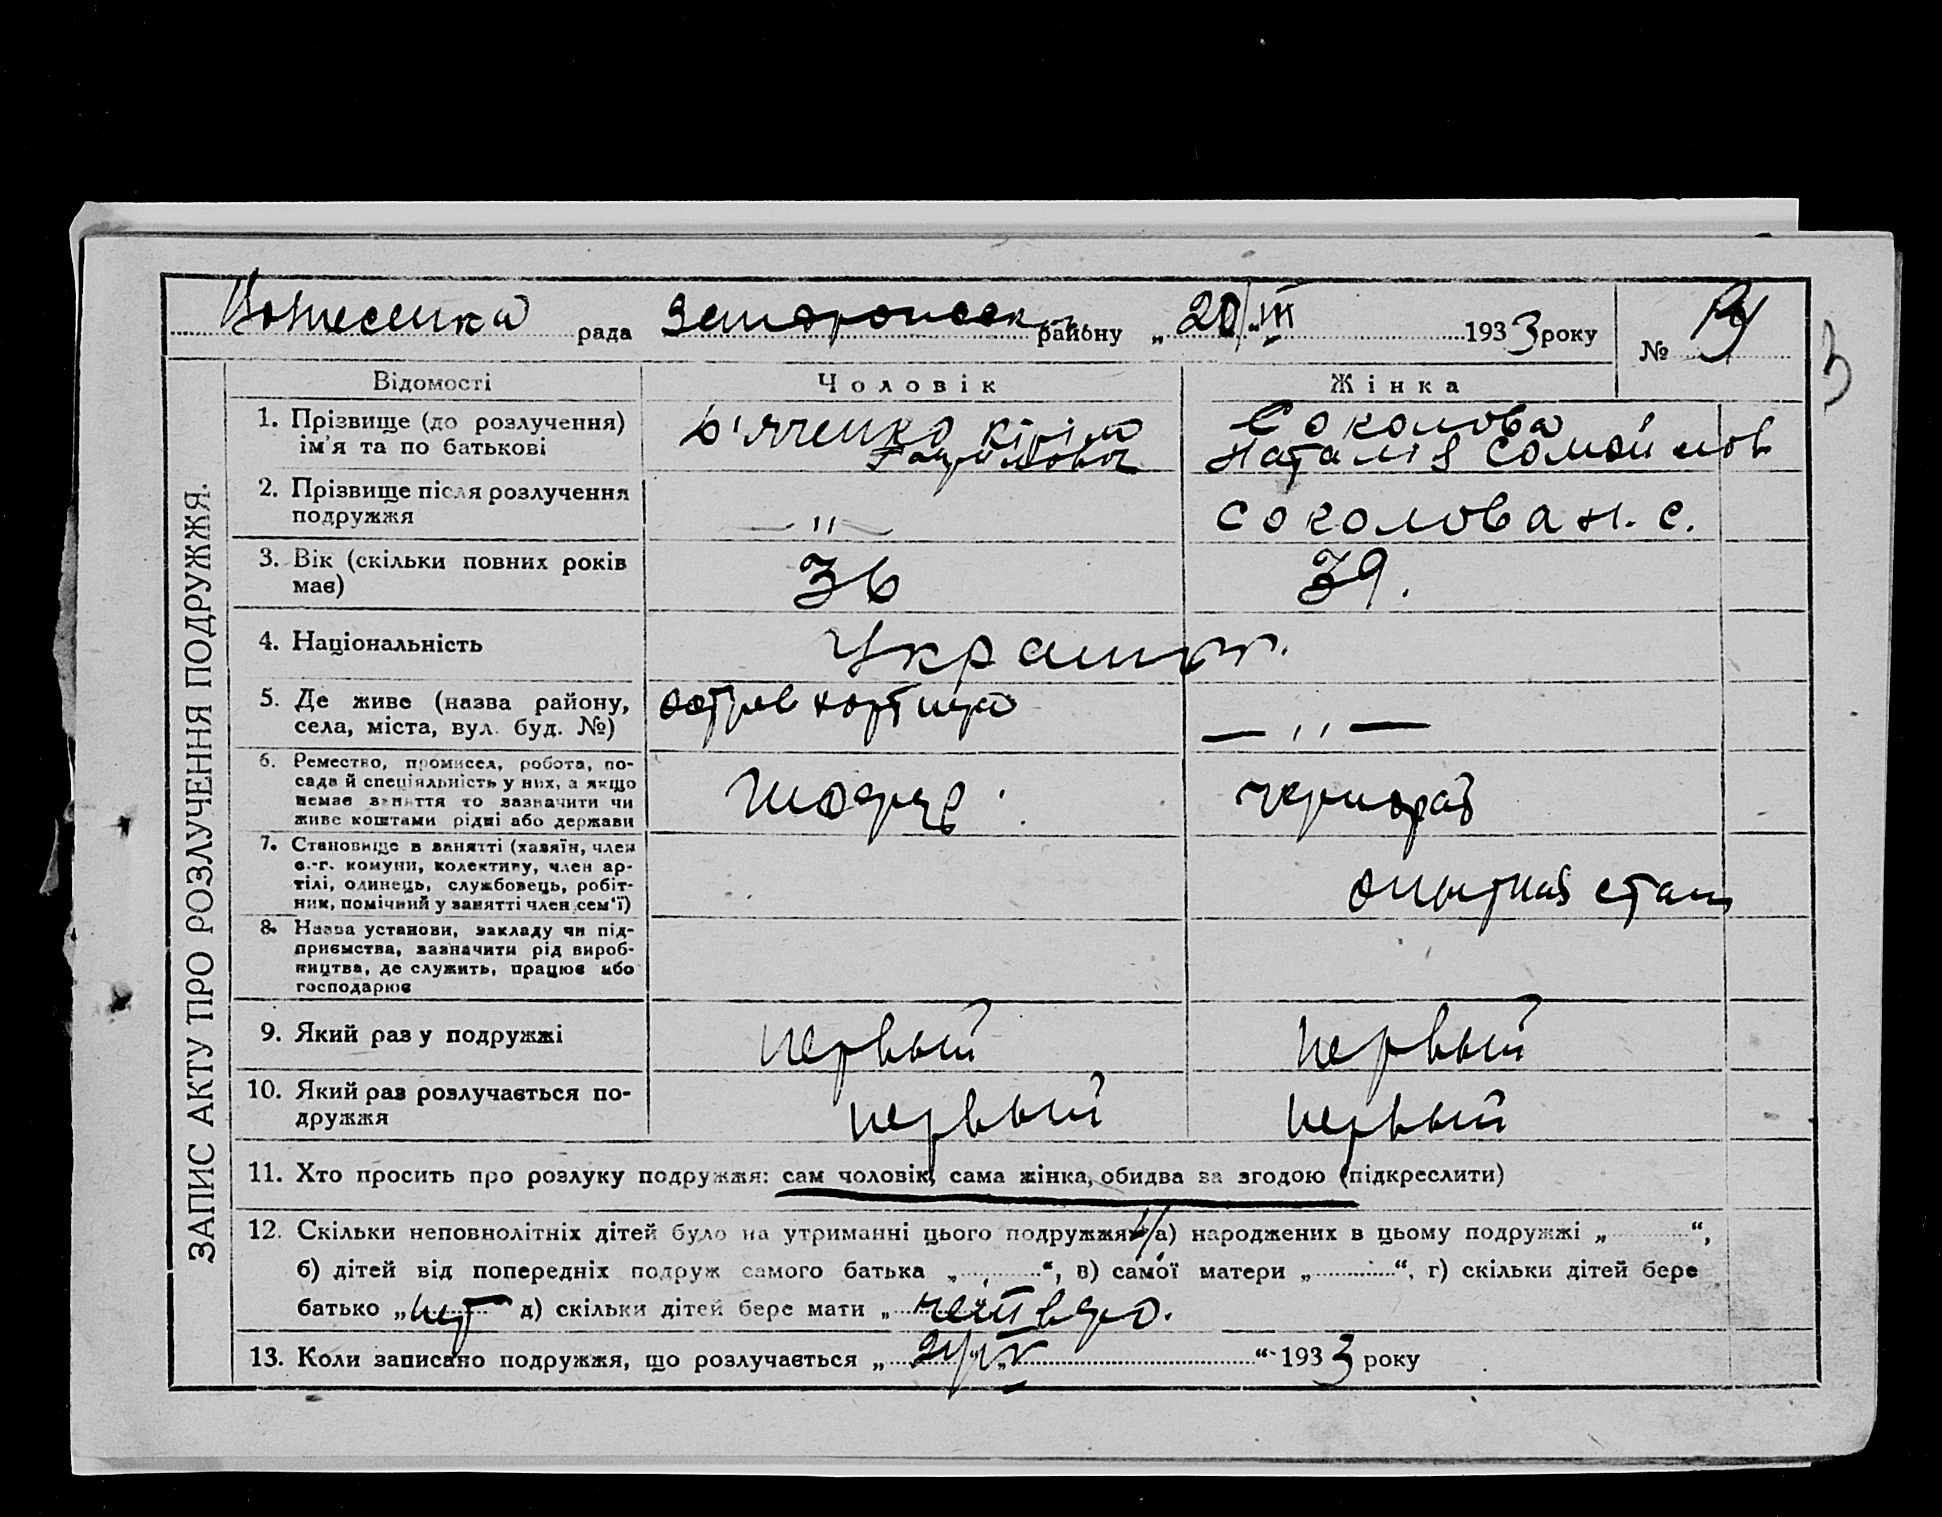 Вознесенка рада Запорожск району „20/III 1933 року
№
3
ЗАПИС АКТУ ПРО РОЗЛУЧЕННЯ ПОДРУЖЖЯ.
Відомості Чоловік Жінка
1. Прізвище (до розлучення) Д'яченко Соколова
ім'я та по батькові Наталія Самойлов
2. Прізвище після розлучення
подружжя —〃— Соколова Н. С.
3. Вік (скільки повних років 36 39.
має)
4. Національність Украин
5. Де живе (назва району, остров Хортица
села, міста, вул. буд. №) —〃—
6. Ремество, промисел, робота, по-
сада й спеціяльність у них, а якщо
немає заняття то зазначити чи Шофер чернораб
живе коштами рідні або держави
7. Становище в занятті (хазяїн, член
с.-г. комуни, колективу, член ар-
тілі, одинець, службовець, робіт- опытная стан
ник, помічний у занятті член сем'ї)
8. Назва установи, закладу чи під-
приємства, зазначити рід вироб-
ництва, де служить, працює або
господарює
9. Який раз у подружжі первый первый
10. Який раз розлучається по- первый первый
дружжя
11. Хто просить про розлуку подружжя: сам чоловік, сама жінка, обидва за згодою (підкреслити)
12. Скільки неповнолітніх дітей було на утриманні цього подружжя: а) народжених в цьому подружжі „ “,
б) дітей від попередніх подруж самого батька „ “, в) самої матери „ “, г) скільки дітей бере
батько „нет д) скільки дітей бере мати „
13. Коли записано подружжя, що розлучається „ “ 1933 року